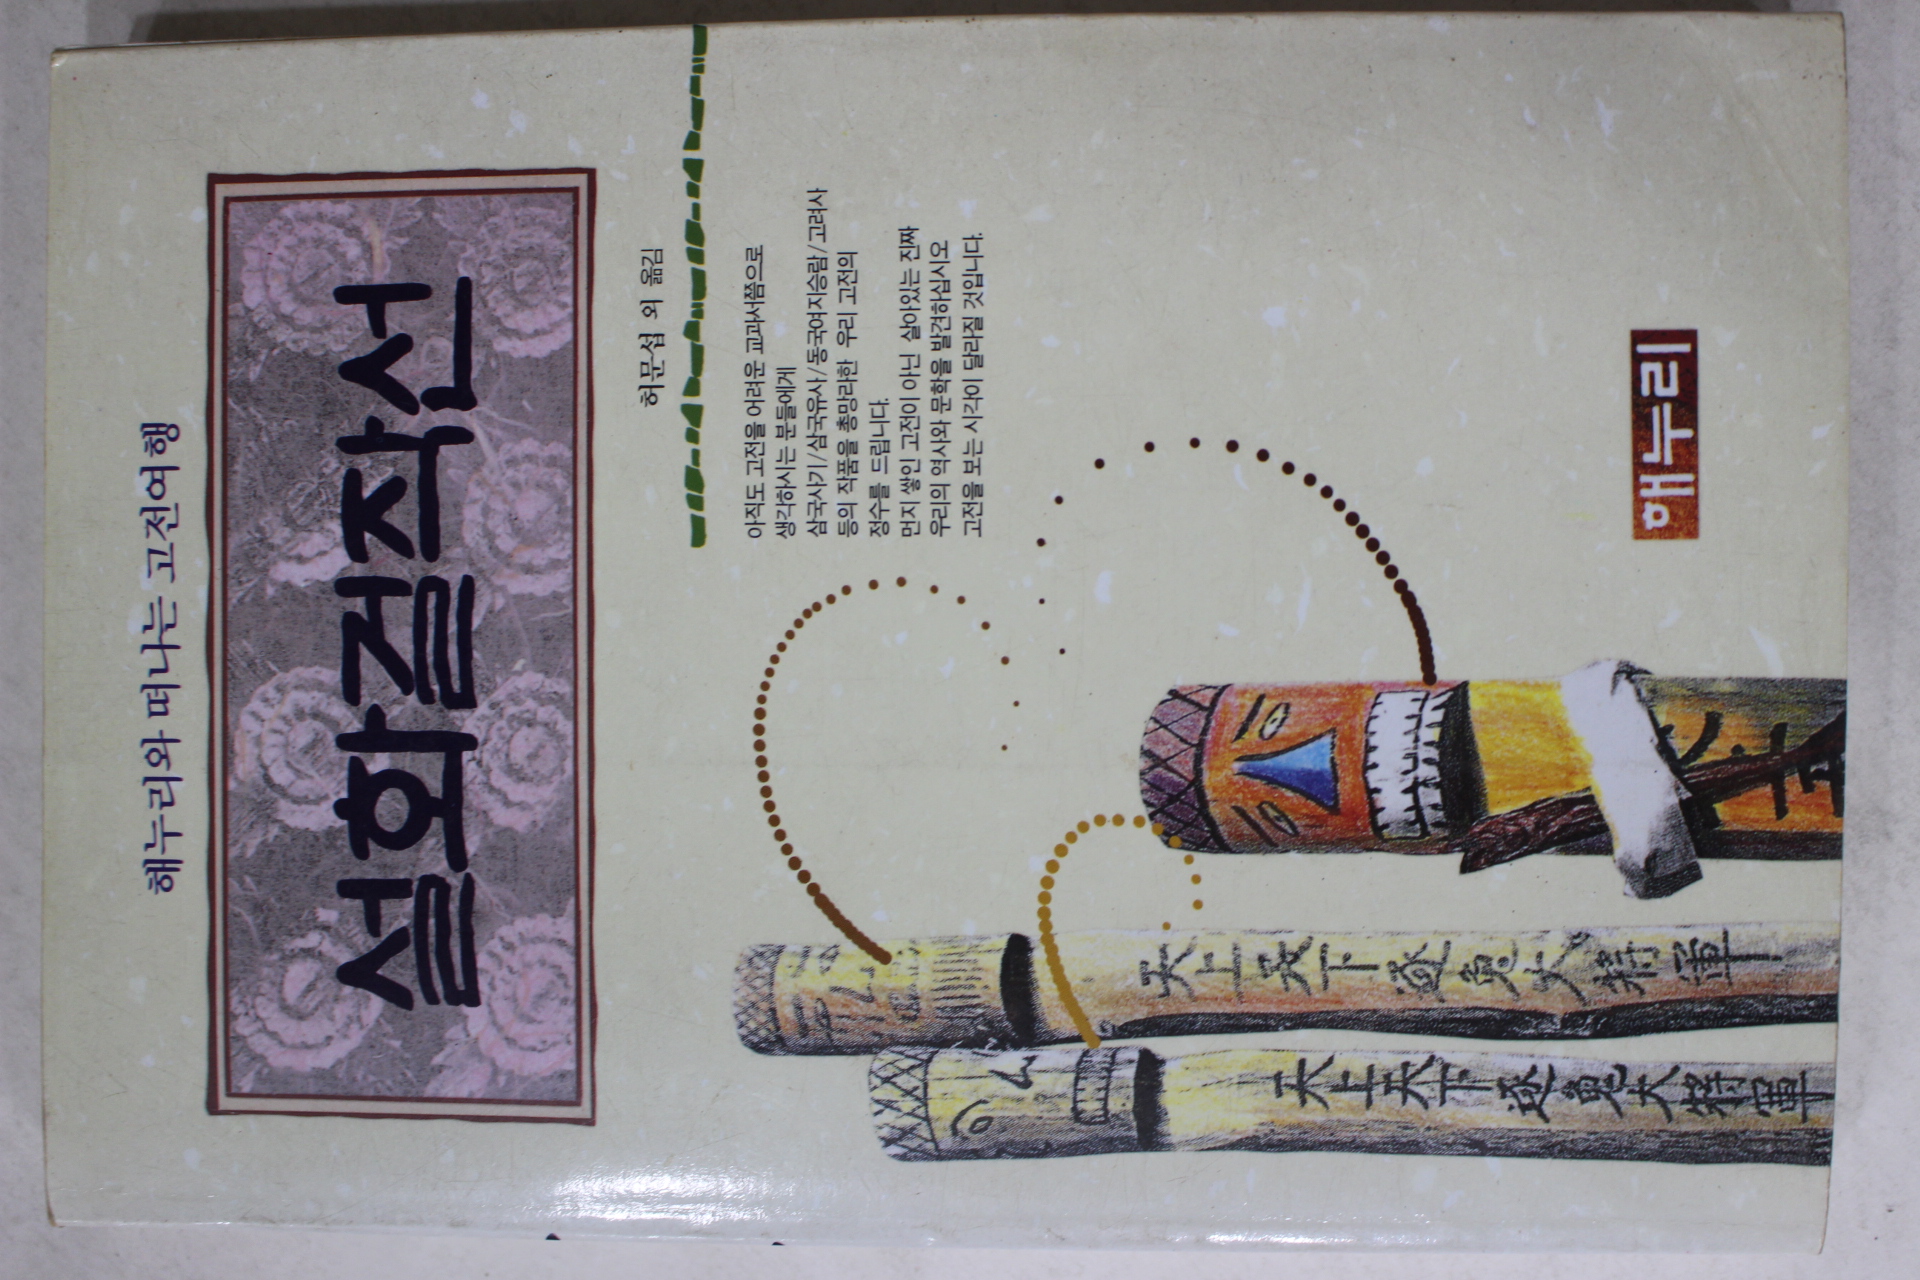 해누리와 떠나는 고전여행
설화걸작선
허문섭 외 옮김
아직도 고전을 어려운 교과서쯤으로
생각하시는 분들에게
삼국사기/삼국유사/동국여지승람/고려사
등의 작품을 총망라한 우리 고전의
정수를 드립니다.
먼지 쌓인 고전이 아닌 살아있는 진짜
우리의 역사와 문학을 발견하십시오
고전을 보는 시각이 달라질 것입니다.
天上天下逐鬼大將軍
天上天下逐鬼大將軍
해누리